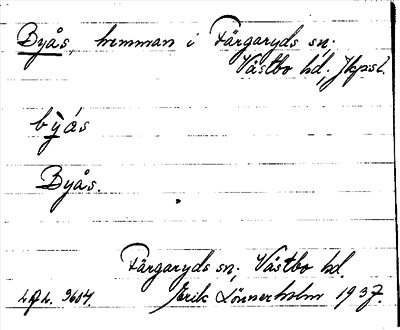 Byås, hemman i Färgaryds sn;
Västbo hd, Jkpsl.
bỳás
Byås.
Färgaryds sn; Västbo hd.
Erik Lönnerholm 1937.